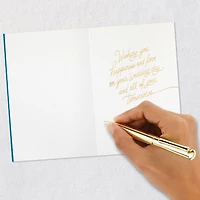 Wishing you
happiness and love
on your wedding day
and all of your
tomorrows.